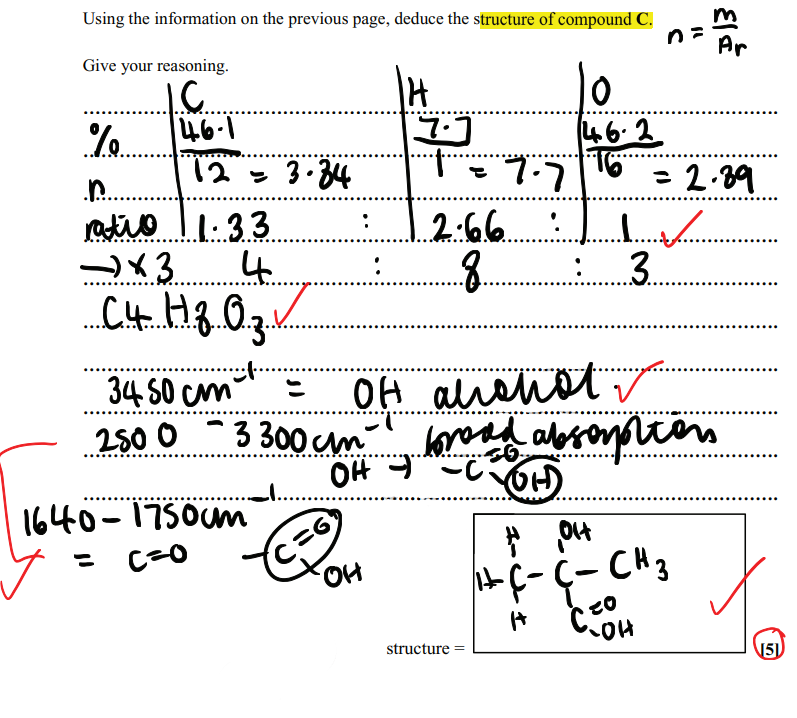 Using the information on the previous page, deduce the structure of compound C.
n = m / Ar
Give your reasoning.
C H O
% 46.1 7.7 46.2
n 12 = 3.84 1 = 7.7 16 = 2.89
ratio 1.33 : 2.66 : 1
→ × 3 4 : 8 : 3
C4 H8 O3
3450 cm⁻¹ = OH alcohol
2500 - 3300 cm⁻¹ broad absorption
OH → -C=O OH
1640 - 1750 cm⁻¹
= C=O -C=O OH
H OH
H C - C - CH3
H C=O
OH
structure =
[5]